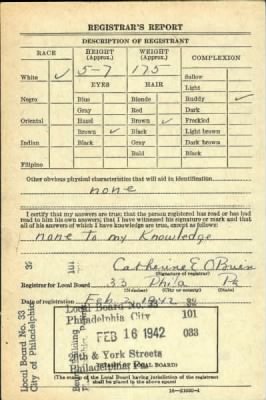 REGISTRAR'S REPORT
DESCRIPTION OF REGISTRANT
RACE HEIGHT (Approx.) WEIGHT (Approx.) COMPLEXION
White ✓ 5-7 175 Sallow
Light
EYES HAIR Ruddy ✓
Negro Blue Blonde Dark
Gray Red Freckled
Oriental Hazel Brown ✓ Light brown
Brown ✓ Black Dark brown
Indian Black Gray Black
Bald
Filipino
Other obvious physical characteristics that will aid in identification
none
I certify that my answers are true; that the person registered has read or has had
read to him his own answers; that I have witnessed his signature or mark and that
all of his answers of which I have knowledge are true, except as follows:
none to my Knowledge
Catherine E O'Brien
(Signature of registrar)
Registrar for Local Board 33 Phila Pa
(Number) (City or county) (State)
Date of registration Feb 1942
Local Board No. 33
City of Philadelphia
101
Local Board No. 33
Philadelphia City 101
FEB 16 1942 033
& York Streets
Philadelphia, Pa.
(STAMP OF LOCAL BOARD)
(The stamp of the Local Board having jurisdiction of the registrant
shall be placed in the above space)